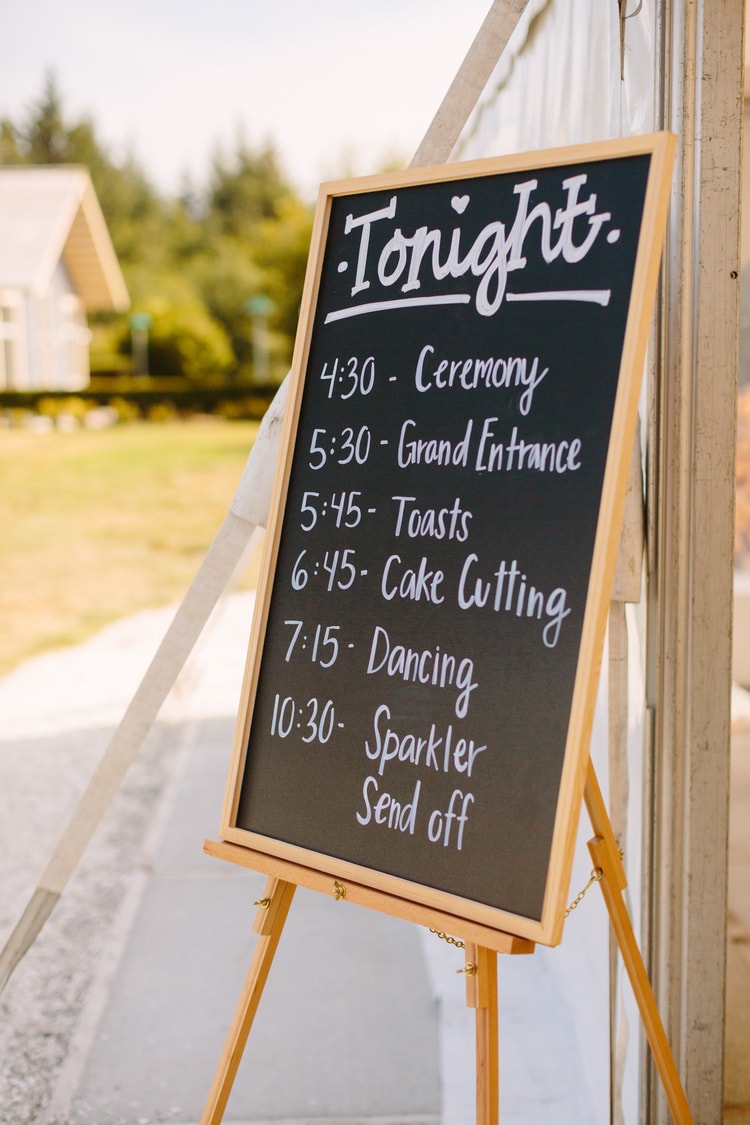 ·Tonight·
4:30 - Ceremony
5:30 - Grand Entrance
5:45 - Toasts
6:45 - Cake Cutting
7:15 - Dancing
10:30 - Sparkler
Send off